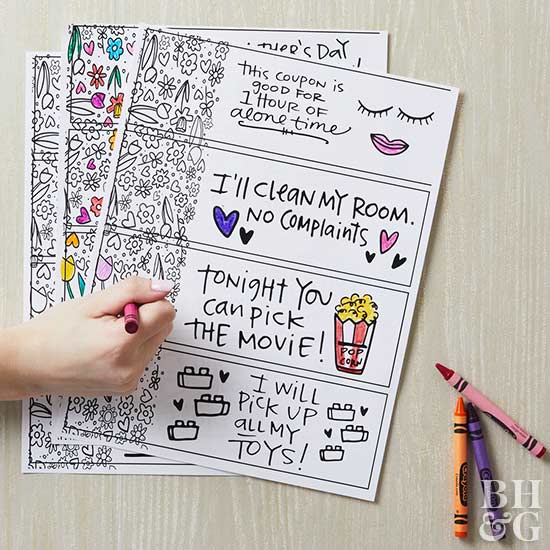 DAY!
THIS COUPON IS
GOOD FOR
1 HOUR OF
alone time
I'LL CLEAN MY ROOM.
NO COMPLAINTS
TONIGHT YOU
CAN PICK
THE MOVIE!
POP
CORN
I WILL
PICK UP
all MY
TOYS!
BH
&G